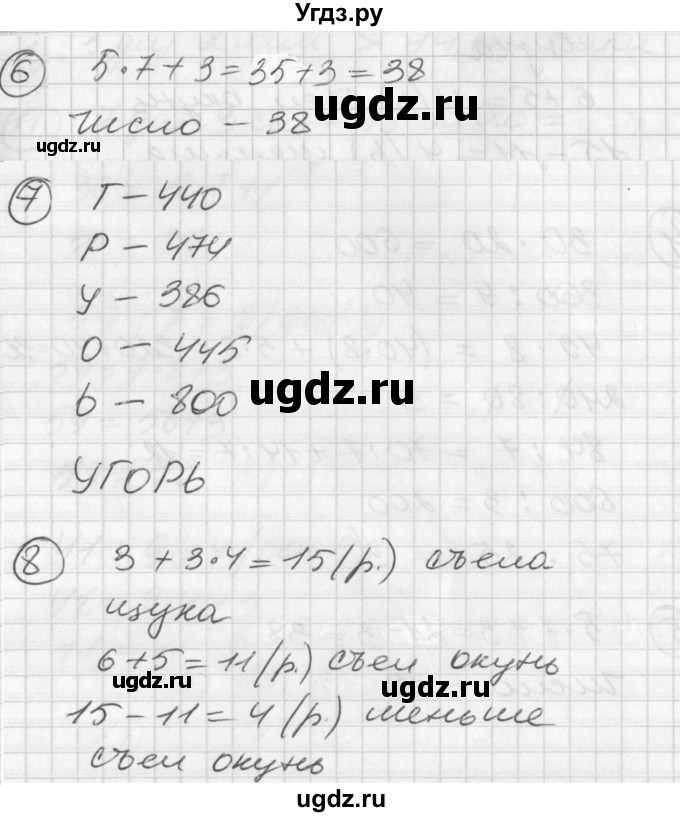 Угдз.ру
6 5·7+3=35+3=38
ugdz.ru
Число – 38
ugdz.ru
7 Г – 440
Р – 474
У – 386
О – 445
ugdz.ru
Ь – 800
УГОРЬ
ugdz.ru
8 3+3·4=15(р.) съела
щука
6+5=11(р.) съел окунь
ugdz.ru
ugdz.ru
15-11=4(р.) меньше
съел окунь
ugdz.ru